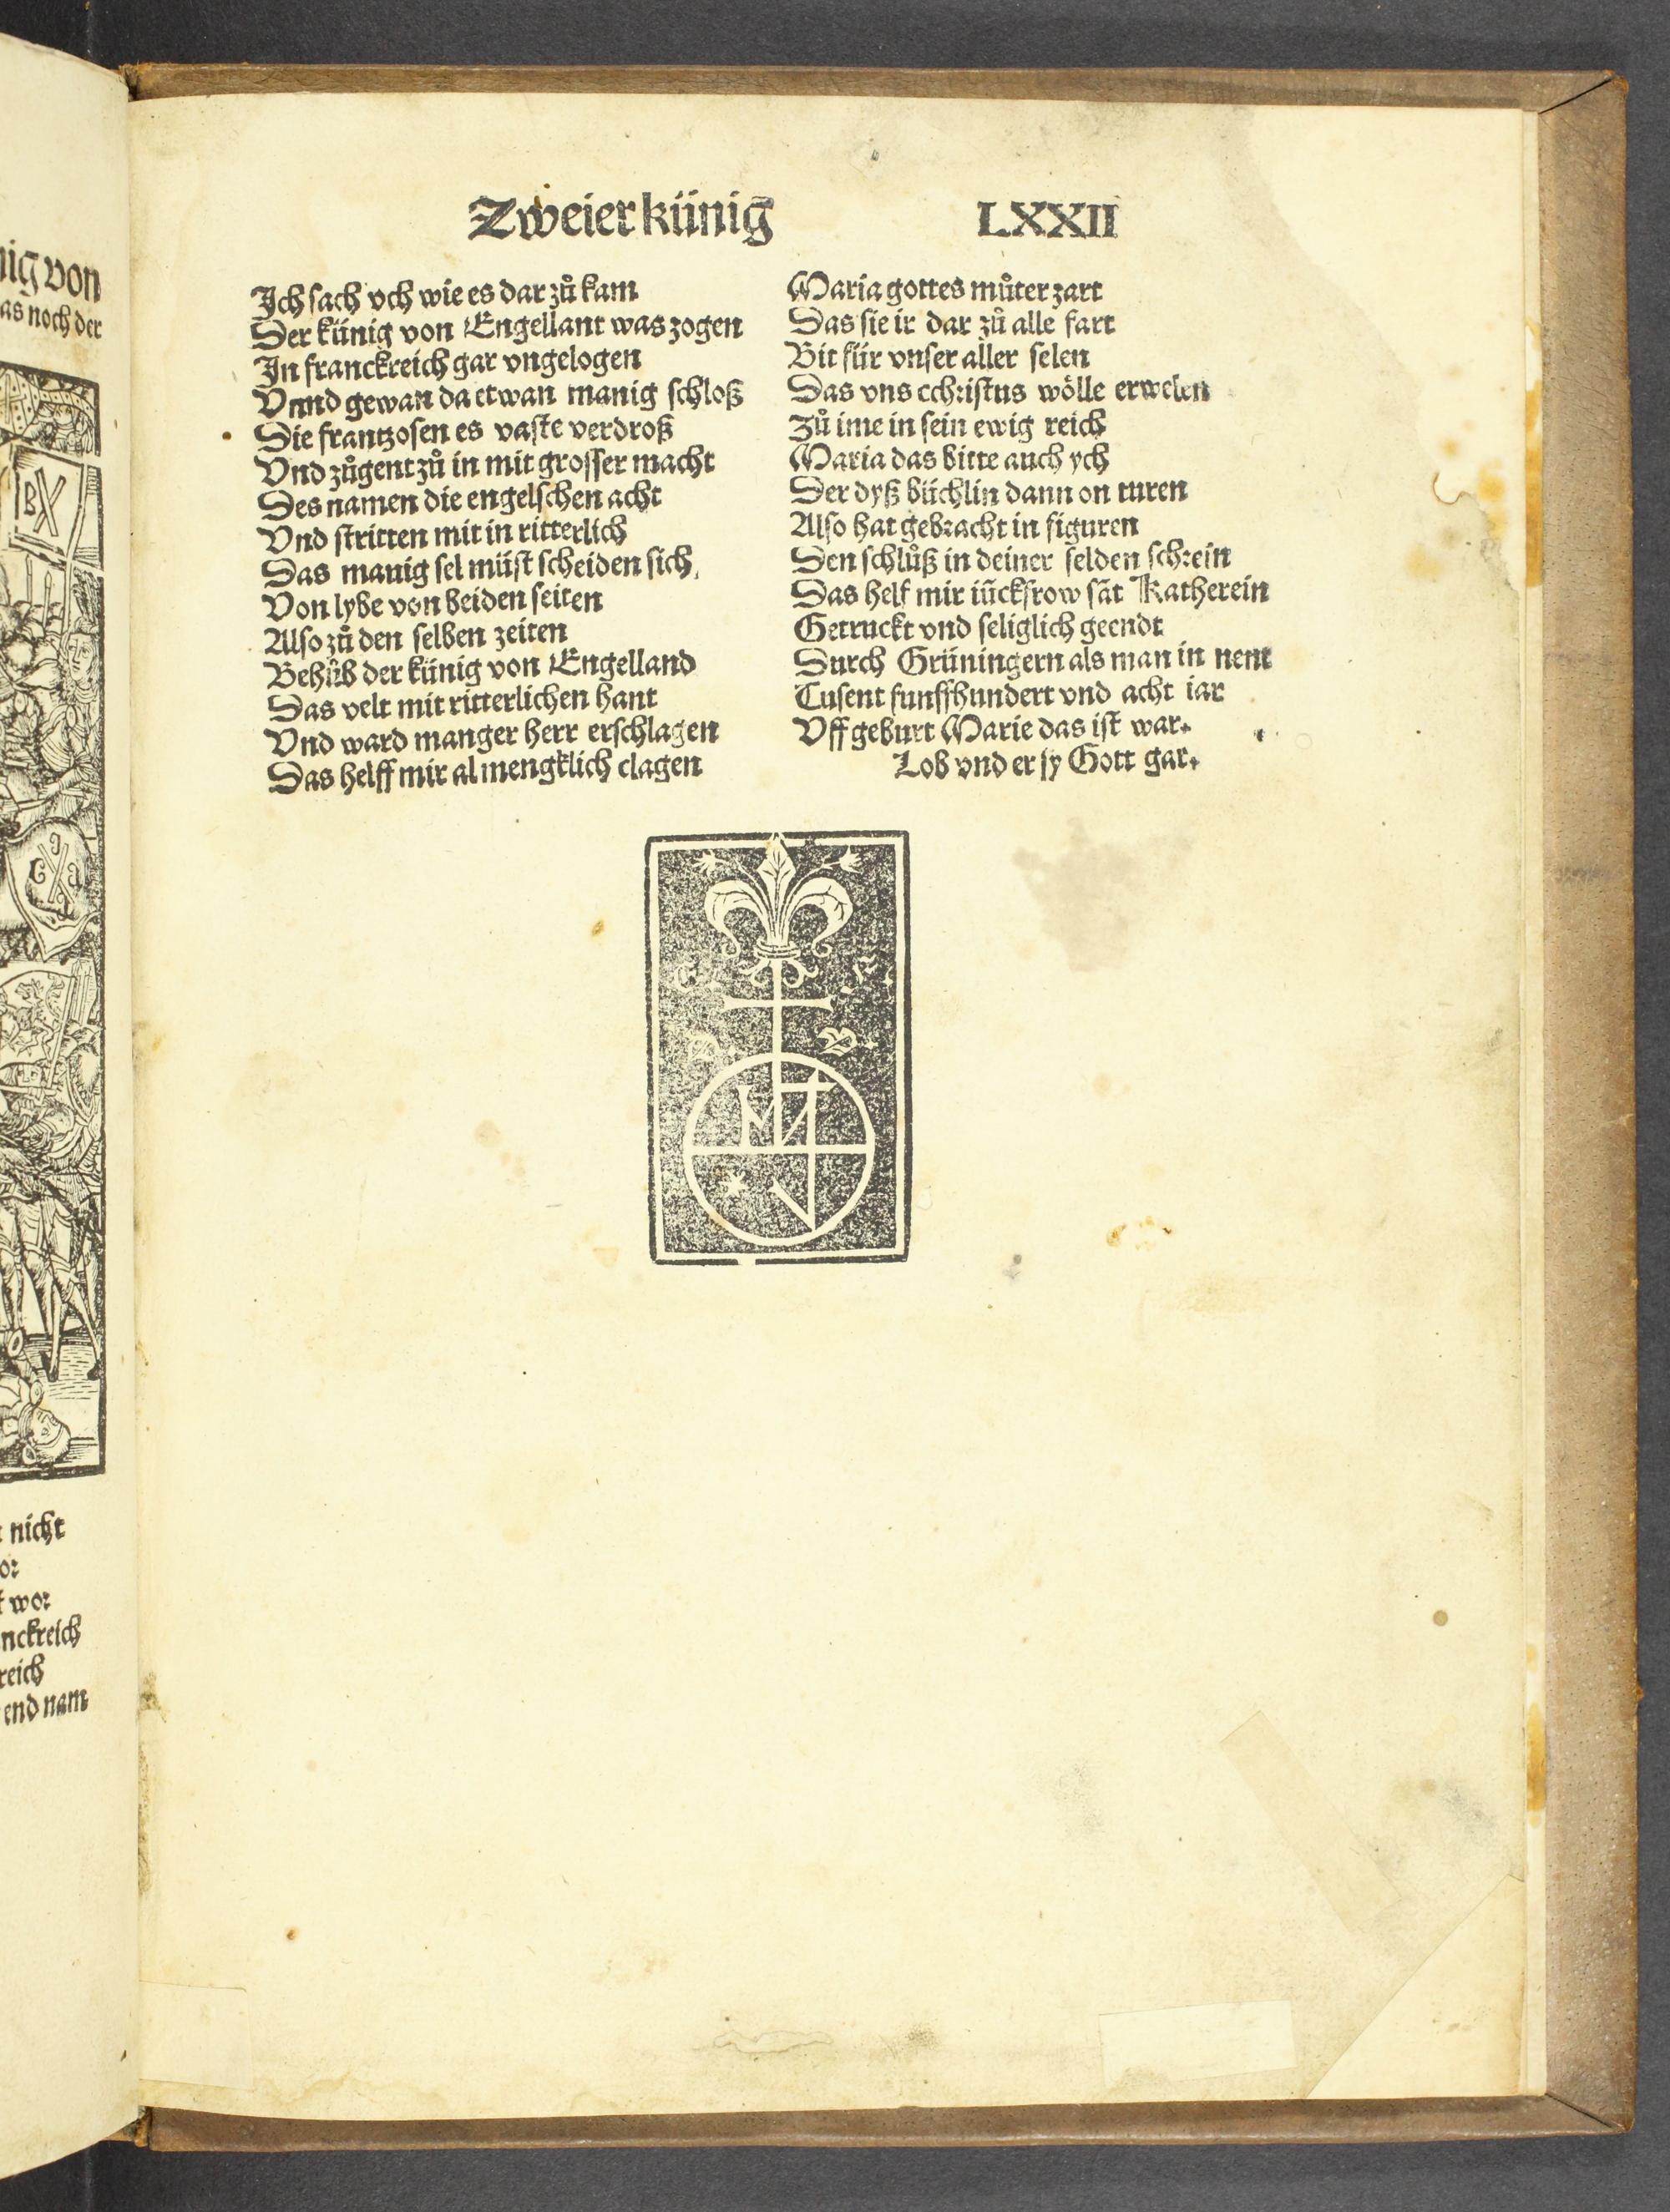 nig von
as noch der
BX
nicht
or
t wor
nckreich
reich
end nam
Zweier künig
LXXII
Ich sach vch wie es dar zů kam
Der künig von Engellant was zogen
In franckreich gar vngelogen
Vnnd gewan da etwan manig schloß
Die frantzosen es vaste verdroß
Vnd zůgent zů in mit grosser macht
Des namen die engelschen acht
Vnd stritten mit in ritterlich
Das manig sel müst scheiden sich
Von lybe von beiden seiten
Also zů den selben zeiten
Behůb der künig von Engelland
Das velt mit ritterlichen hant
Vnd ward manger herr erschlagen
Das helff mir almengklich clagen
Maria gottes můter zart
Das sie ir dar zů alle fart
Bit für vnser aller selen
Das vns cchristus wölle erwelen
Zů ime in sein ewig reich
Maria das bitte auch ych
Der dyß büchlin dann on turen
Also hat gebracht in figuren
Den schlůß in deiner selden schrein
Das helf mir iūckfrow sāt Katherein
Getruckt vnd seliglich geendt
Durch Grüningern als man in nent
Tusent funffhundert vnd acht iar
Vff geburt Marie das ist war.
Lob vnd er sy Gott gar.